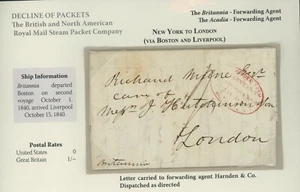 DECLINE OF PACKETS
The British and North American
Royal Mail Steam Packet Company
The Britannia - Forwarding Agent
The Acadia - Forwarding Agent
NEW YORK TO LONDON
(VIA BOSTON AND LIVERPOOL)
Ship Information
Britannia departed
Boston on second
voyage October 1,
1840, arrived Liverpool
October 15, 1840.
Postal Rates
United States 0
Great Britain 1/-
Richard Milne Esqr
care of
Messrs J. Hutchinson
London
Britannia
Letter carried to forwarding agent Harnden & Co.
Dispatched as directed